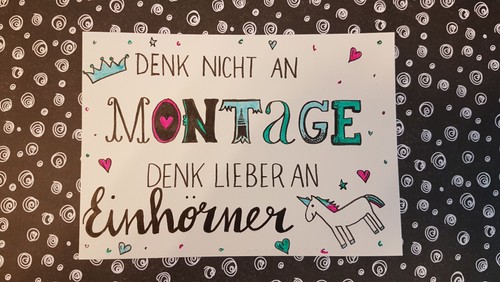 DENK NICHT AN
MONTAGE
DENK LIEBER AN
Einhörner